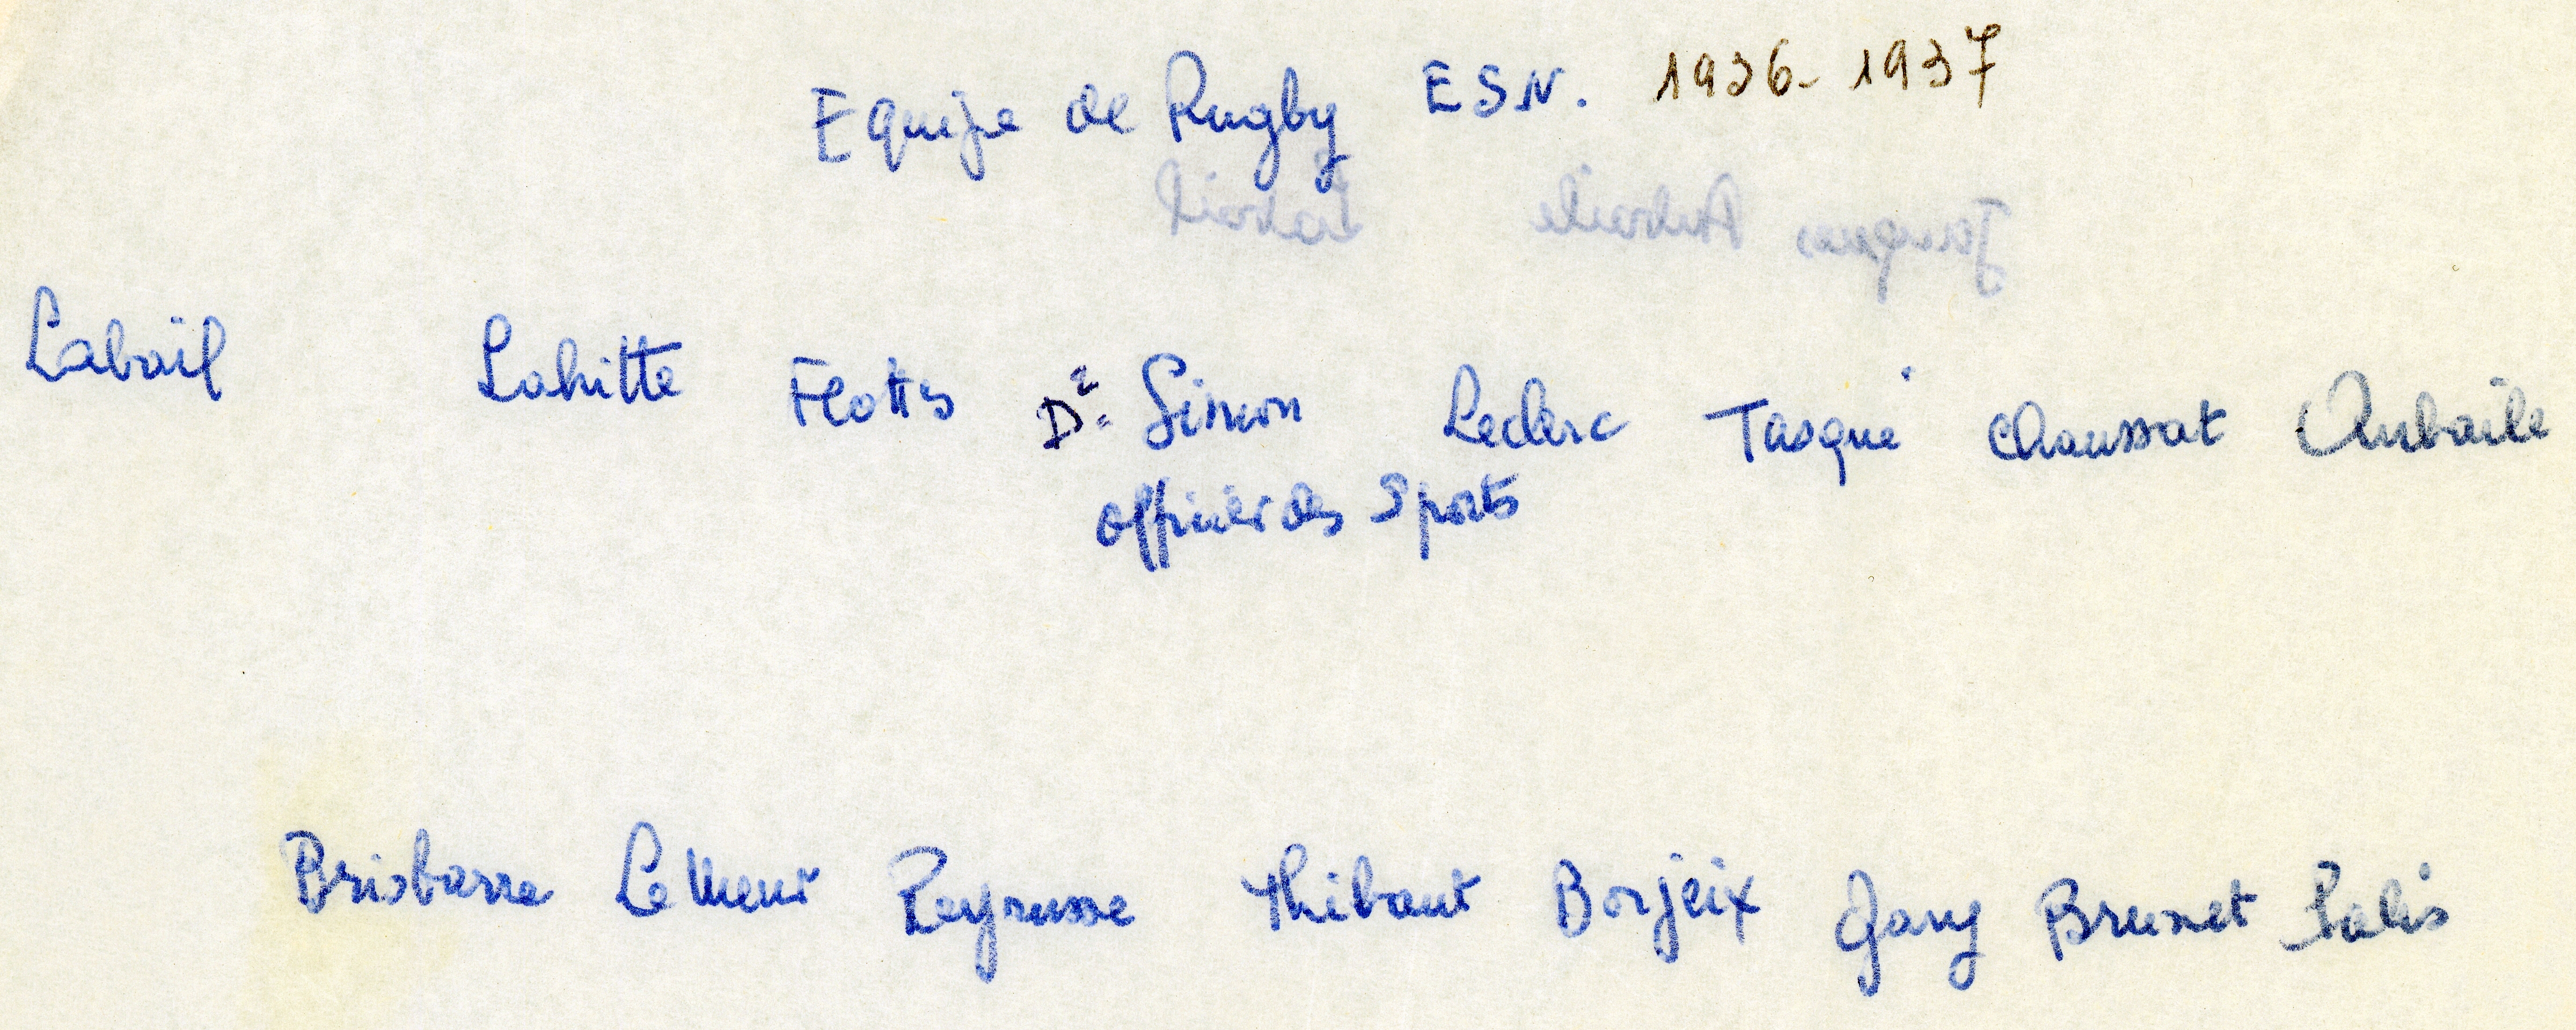 Equipe de Rugby ESN. 1936-1937
Labail Lahitte Flottes Dr. Simon Leclerc Tasqué Chaussat Aubaile
officier des Sports
Brisbarre Le Meur Peyrusse Thibaut Borjeix Gary Brunet Salis